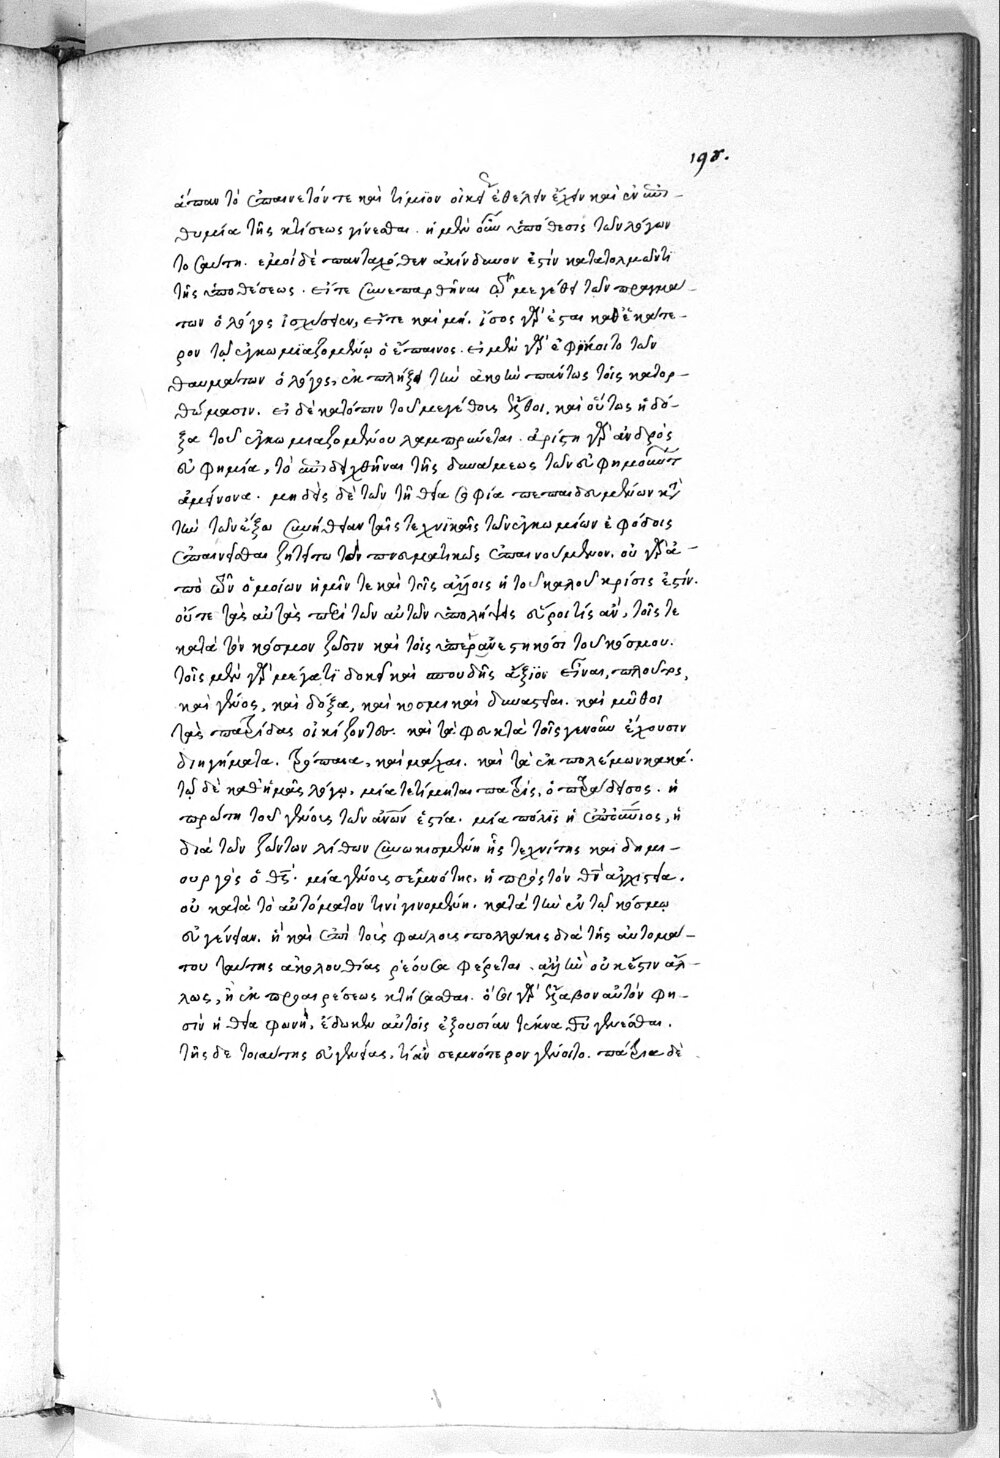 198.
ἅπαν τὸ ἐπαινετόν τε καὶ τίμιον οἰκειοῦν ἐθέλειν ἔχειν καὶ ἐν ἐπι-
θυμία τῆς κτίσεως γίνεσθαι. ἡ μὲν οὖν ὑπόθεσις τῶν λόγων
τοσαύτη. ἐμοὶ δὲ πανταχόθεν ἀκίνδυνον ἐστὶν κατατολμῶντι
τῆς ὑποθέσεως. εἴτε συνεπαρθῆναι τῷ μεγέθει τῶν πραγμά-
των ὁ λόγος ἰσχύσειεν, εἴτε καὶ μή. ἴσος γὰρ ἔσται καθ' ἑκάτε-
ρον τῷ ἐγκωμιαζομένῳ ὁ ἔπαινος. εἰ μὲν γὰρ ἐφίκοιτο τῶν
θαυμάτων ὁ λόγος, ἐκπλήξει τὴν ἀκοὴν πάντως τοῖς κατορ-
θώμασιν. εἰ δὲ κατόπιν τοῦ μεγέθους ἔλθοι, καὶ οὕτως ἡ δό-
ξα τοῦ ἐγκωμιαζομένου λαμπρύνεται. ἀρίστη γὰρ ἀνδρὸς
εὐφημία, τὸ ἐπιδειχθῆναι τῆς δυνάμεως τῶν εὐφημούντων
ἀμείνονα. μηδεὶς δὲ τῶν τῆ θεία σοφία πεπαιδευμένων κατὰ
τὴν τῶν ἔξω συνήθειαν ταῖς τεχνικαῖς τῶν ἐγκωμίων ἐφόδοις
ἐπαινεῖσθαι ζητείτω τὸν πνευματικῶς ἐπαινούμενον. οὐ γὰρ ἀ-
πὸ τῶν ὁμοίων ἡμῖν τε καὶ τοῖς ἄλλοις ἡ τοῦ καλοῦ κρίσις ἐστίν.
οὔτε τὰς αὐτὰς περὶ τῶν αὐτῶν ὑπολήψεις εὕροι τίς ἂν, τοῖς τε
κατὰ τὸν κόσμον ζῶσιν καὶ τοῖς ὑπερανεστηκόσι τοῦ κόσμου.
τοῖς μὲν γὰρ μέγα τὶ δοκεῖ καὶ σπουδῆς ἄξιον εἶναι, πλοῦτος,
καὶ γένος, καὶ δόξα, καὶ κοσμικαὶ δυναστεῖαι. καὶ μῦθοι
τὰς πατρίδας οἰκίζοντες. καὶ τὰ φευκτὰ τοῖς γενοῦν ἔχουσιν
διηγήματα. τρόπαια, καὶ μάχαι. καὶ τὰ ἐκ πολέμων κακά.
τῷ δὲ καθ' ἡμᾶς λόγῳ, μία τετίμηται πατρὶς, ὁ παράδεισος. ἡ
πρώτη τοῦ γένους τῶν ἀνων ἑστία. μία πόλις ἡ ἐπουράνιος, ἡ
διὰ τῶν ζώντων λίθων συνωκισμένη ἧς τεχνίτης καὶ δημι-
ουργὸς ὁ θς. μία γένους σεμνότης, ἡ πρὸς τὸν θν ἀγχιστεία.
οὐ κατὰ τὸ αὐτόματον τινὶ γινομένη. κατὰ τὴν ἐν τῷ κόσμῳ
εὐγένειαν. ἣ καὶ ἐπὶ τοὺς φαύλους πολλάκις διὰ τῆς αὐτομά-
του ταύτης ἀκολουθίας ῥέουσα φέρεται. ἀλλ' ἣν οὐκ ἔστιν ἄλ-
λως, ἢ ἐκ προαιρέσεως κτήσασθαι. ὅσοι γὰρ ἔλαβον αὐτόν φη-
σὶν ἡ θεία φωνὴ, ἔδωκεν αὐτοῖς ἐξουσίαν τέκνα θυ γενέσθαι.
τῆς δὲ τοιαύτης εὐγενείας, τί ἂν σεμνότερον γένοιτο. πάτρια δὲ